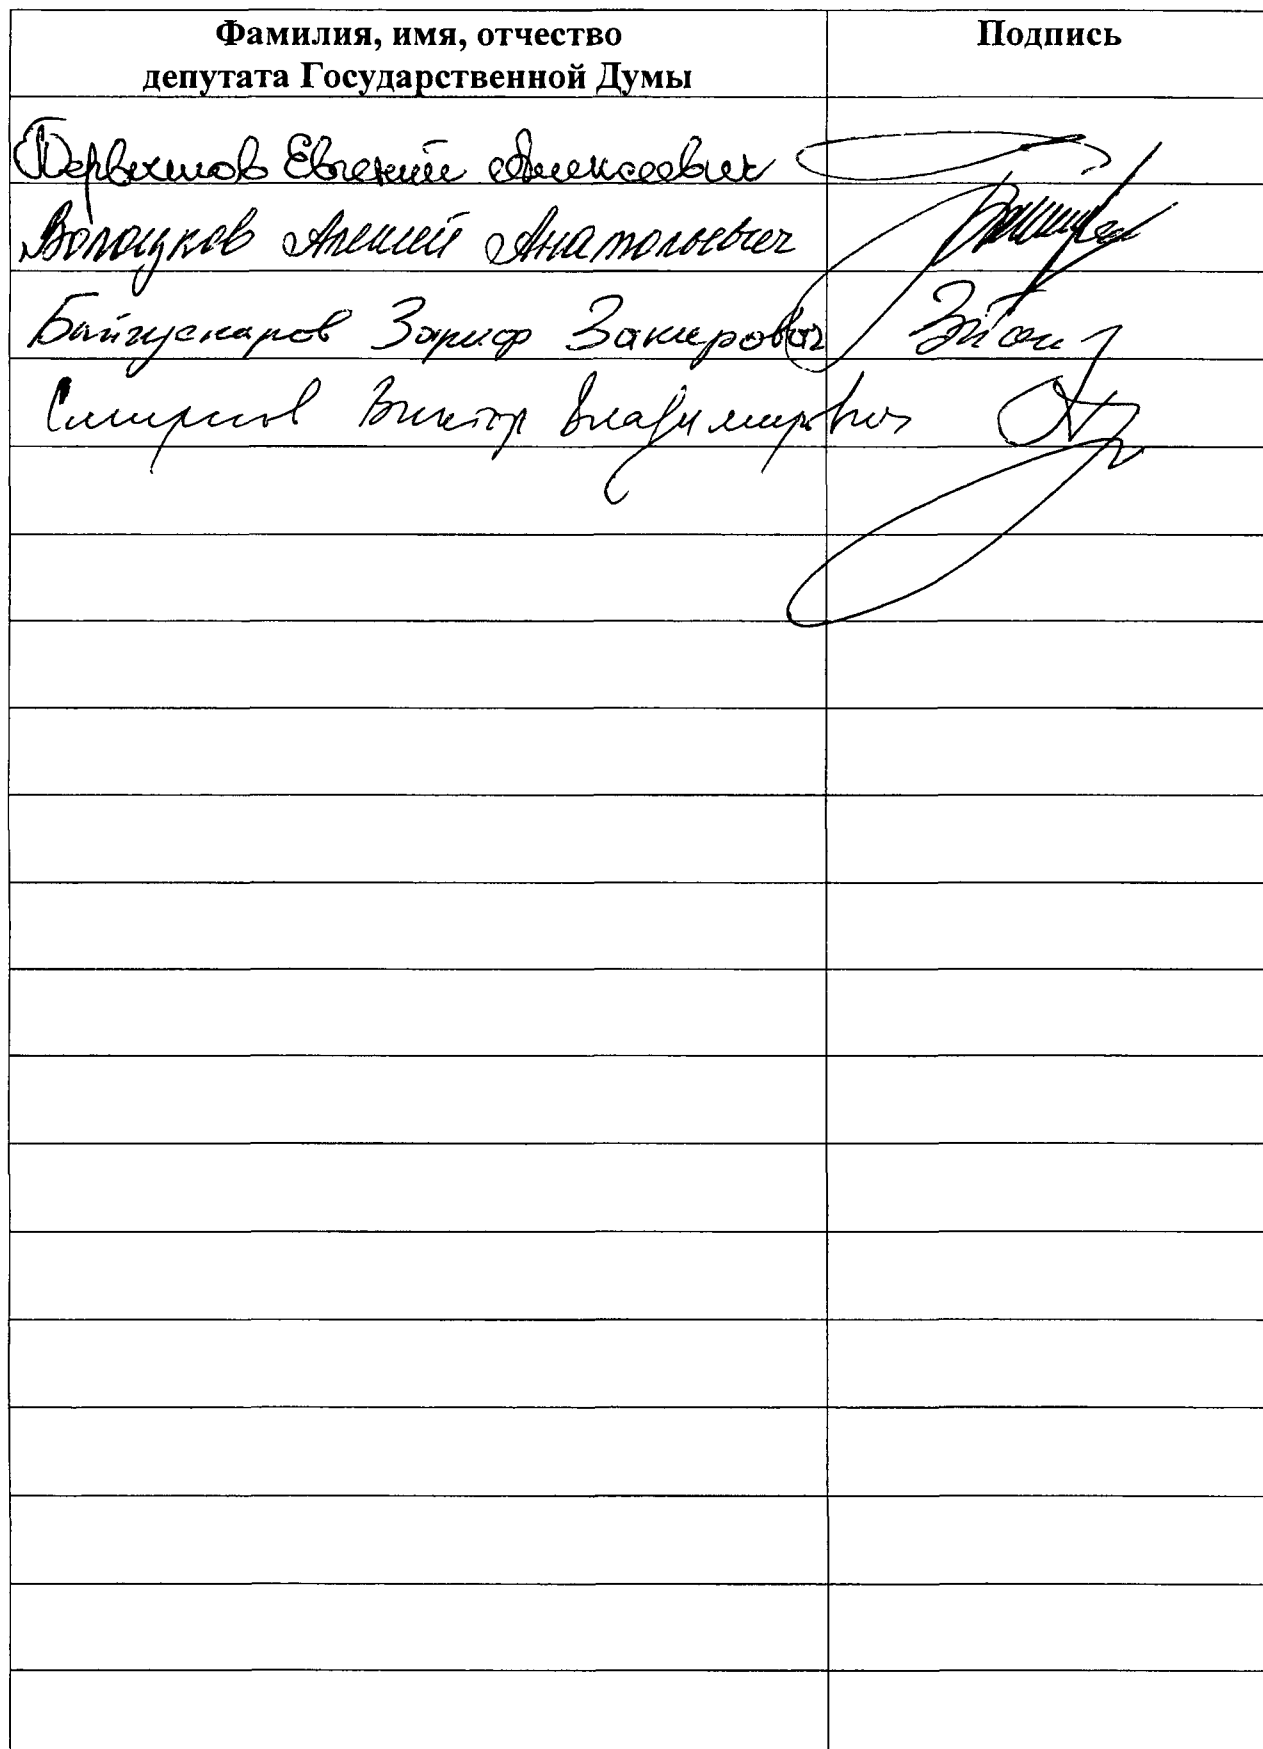 Фамилия, имя, отчество Подпись
депутата Государственной Думы
Первышов Евгений Алексеевич
Волоцков Алексей Анатольевич
Байгускаров Зариф Закирович
Смирнов Виктор Владимирович